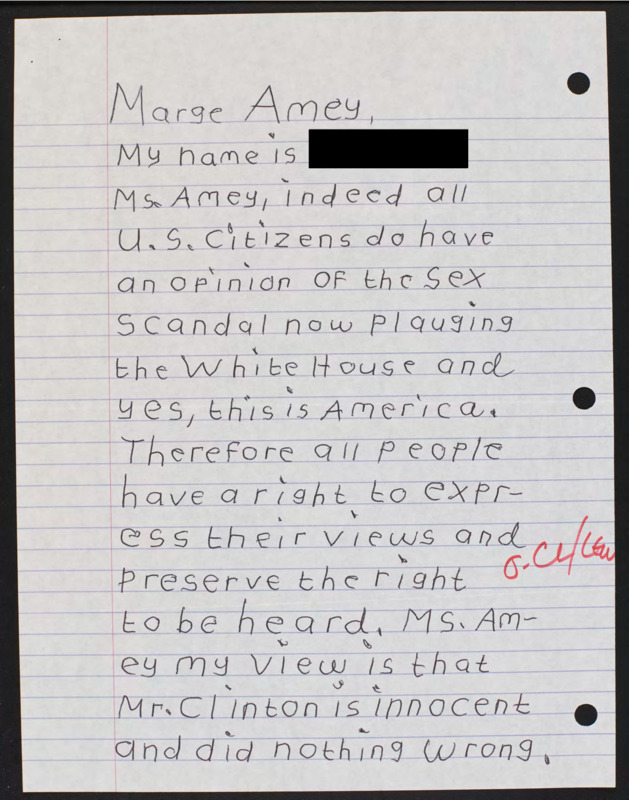 Marge Amey,
My name is
Ms. Amey, indeed all
U.S. Citizens do have
an opinion of the Sex
Scandal now plauging
the White House and
yes, this is America.
Therefore all people
have a right to expr-
ess their views and
preserve the right
to be heard. Ms. Am-
ey my view is that
Mr. Clinton is innocent
and did nothing wrong.